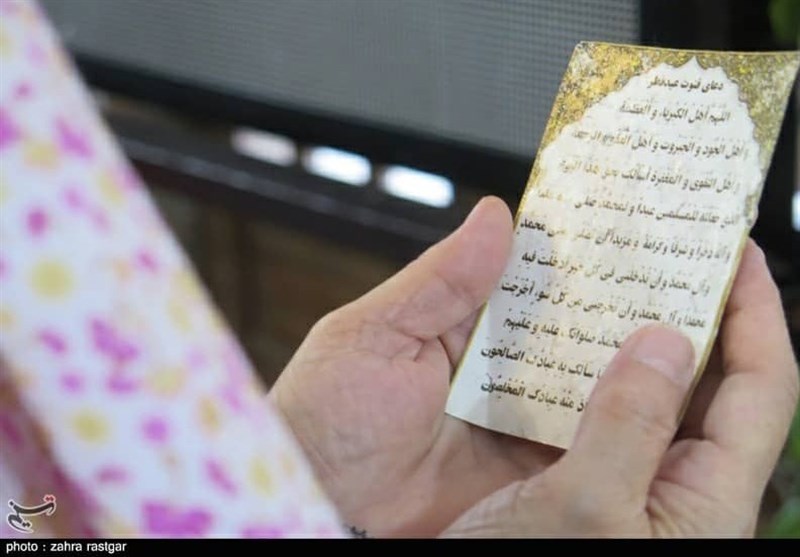 دعای قنوت عید فطر
اللهم أهل الكبرياء و العظمة
و اهل الجود و الجبروت و اهل العفو و الرحمة
و اهل التقوى و المغفرة اسألك بحق هذا اليوم
الذى جعلته للمسلمين عيدا و لمحمد صلى
و آله ذخرا و شرفا و كرامة و مزيدا أن تصلى على محمد
و آل محمد و أن تدخلنى فى كل خير ادخلت فيه
محمدا و آل محمد و أن تخرجنى من كل سوء أخرجت
محمد صلواتك عليه و عليهم
سألك به عبادك الصالحون
منه عبادك المخلصون
تسنیم
photo : zahra rastgar